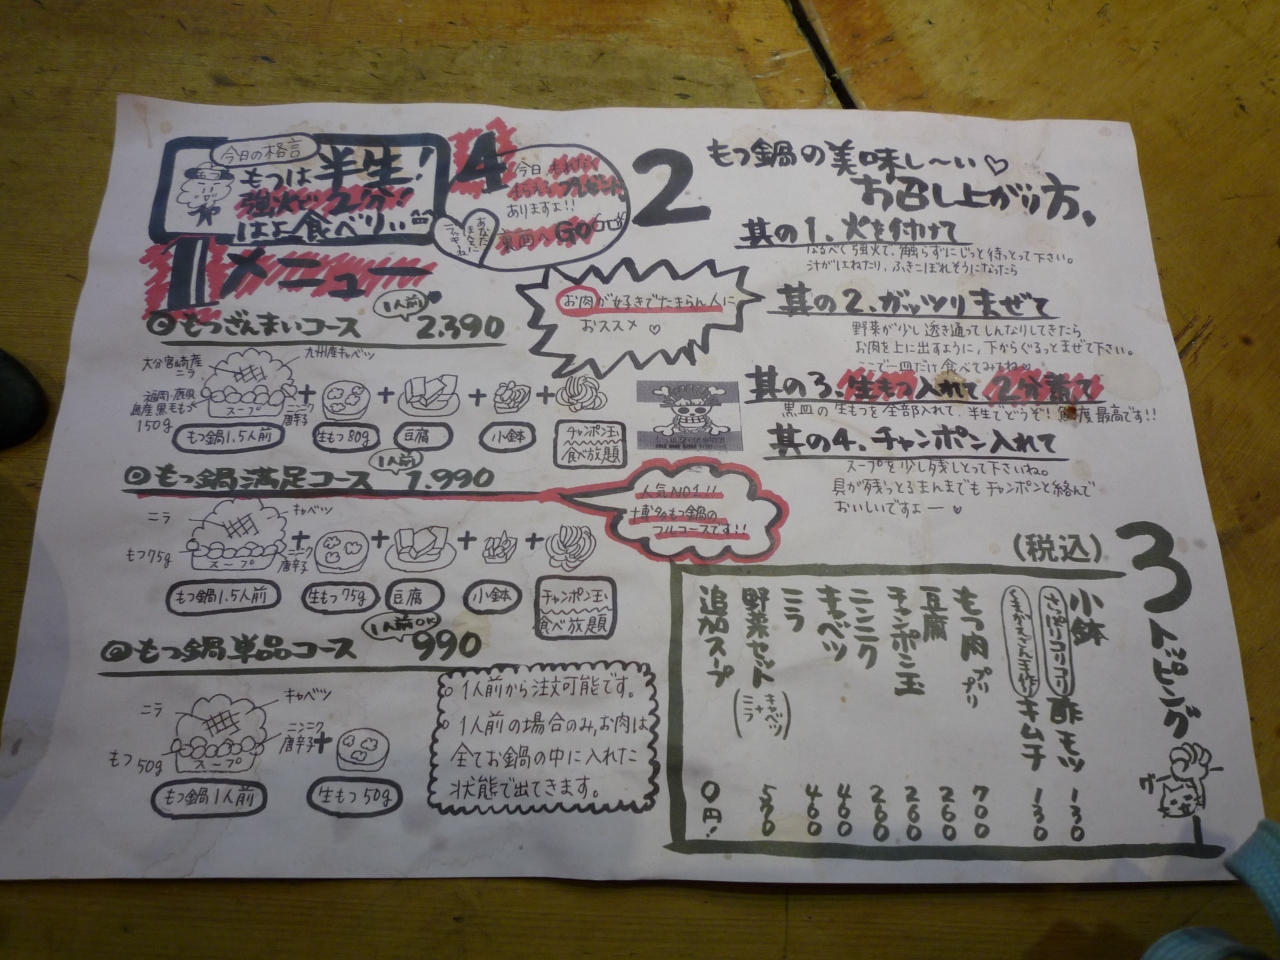 今日の格言
もつは半生!
強火で2分!
はよ食べりぃ
4
今日
プレゼント
ありますよ!!
裏面へGO
1 メニュー
◎もつざんまいコース 1人前 2.390
大分宮崎産
ニラ
九州産キャベツ
福岡・鹿児
島産黒毛もつ
150g
スープ
ニンニク
唐辛子
もつ鍋1.5人前
生もつ80g
豆腐
小鉢
チャンポン玉
食べ放題
お肉が好きでたまらん人に
おススメ♡
◎もつ鍋満足コース 1人前 1.990
人気NO1!!
博多もつ鍋の
フルコースです!!
ニラ
キャベツ
もつ75g
スープ
ニンニク
唐辛子
もつ鍋1.5人前
生もつ75g
豆腐
小鉢
チャンポン玉
食べ放題
◎もつ鍋単品コース 1人前OK 990
ニラ
キャベツ
もつ
50g
スープ
ニンニク
唐辛子
もつ鍋1人前
生もつ50g
○1人前から注文可能です。
○1人前の場合のみ、お肉は
全てお鍋の中に入れた
状態で出てきます。
2 もつ鍋の美味し〜い♡
お召し上がり方、
其の1、火を付けて
なるべく強火で、触らずにじっと待っとって下さい。
汁がはねたり、ふきこぼれそうになったら
其の2、ガッツリまぜて
野菜が少し透き通ってしんなりしてきたら
お肉を上に出すように、下からぐるっとまぜて下さい。
ここで一皿だけ食べてみてね♡
其の3、生もつ入れて2分煮て
黒皿の生もつを全部入れて、半生でどうぞ!鮮度最高です!!
其の4、チャンポン入れて
スープを少し残しとって下さいね。
具が残っとるまんまでもチャンポンと絡んで
おいしいですよー♡
3 トッピング
(税込)
小鉢
さっぱりコリコリ 酢モツ 130
くまがえごん手作り キムチ 130
もつ肉プリプリ 700
豆腐 260
チャンポン玉 260
ニンニク 260
キャベツ 460
ニラ 460
野菜セット(キャベツ+ニラ) 570
追加スープ 0円!